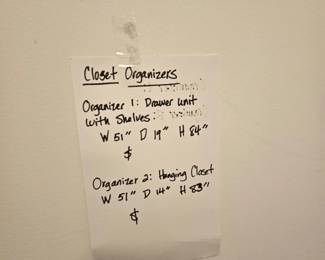 Closet Organizers
Organizer 1: Drawer Unit
with Shelves:
W 51" D 19" H 84"
$
Organizer 2: Hanging Closet
W 51" D 14" H 83"
$